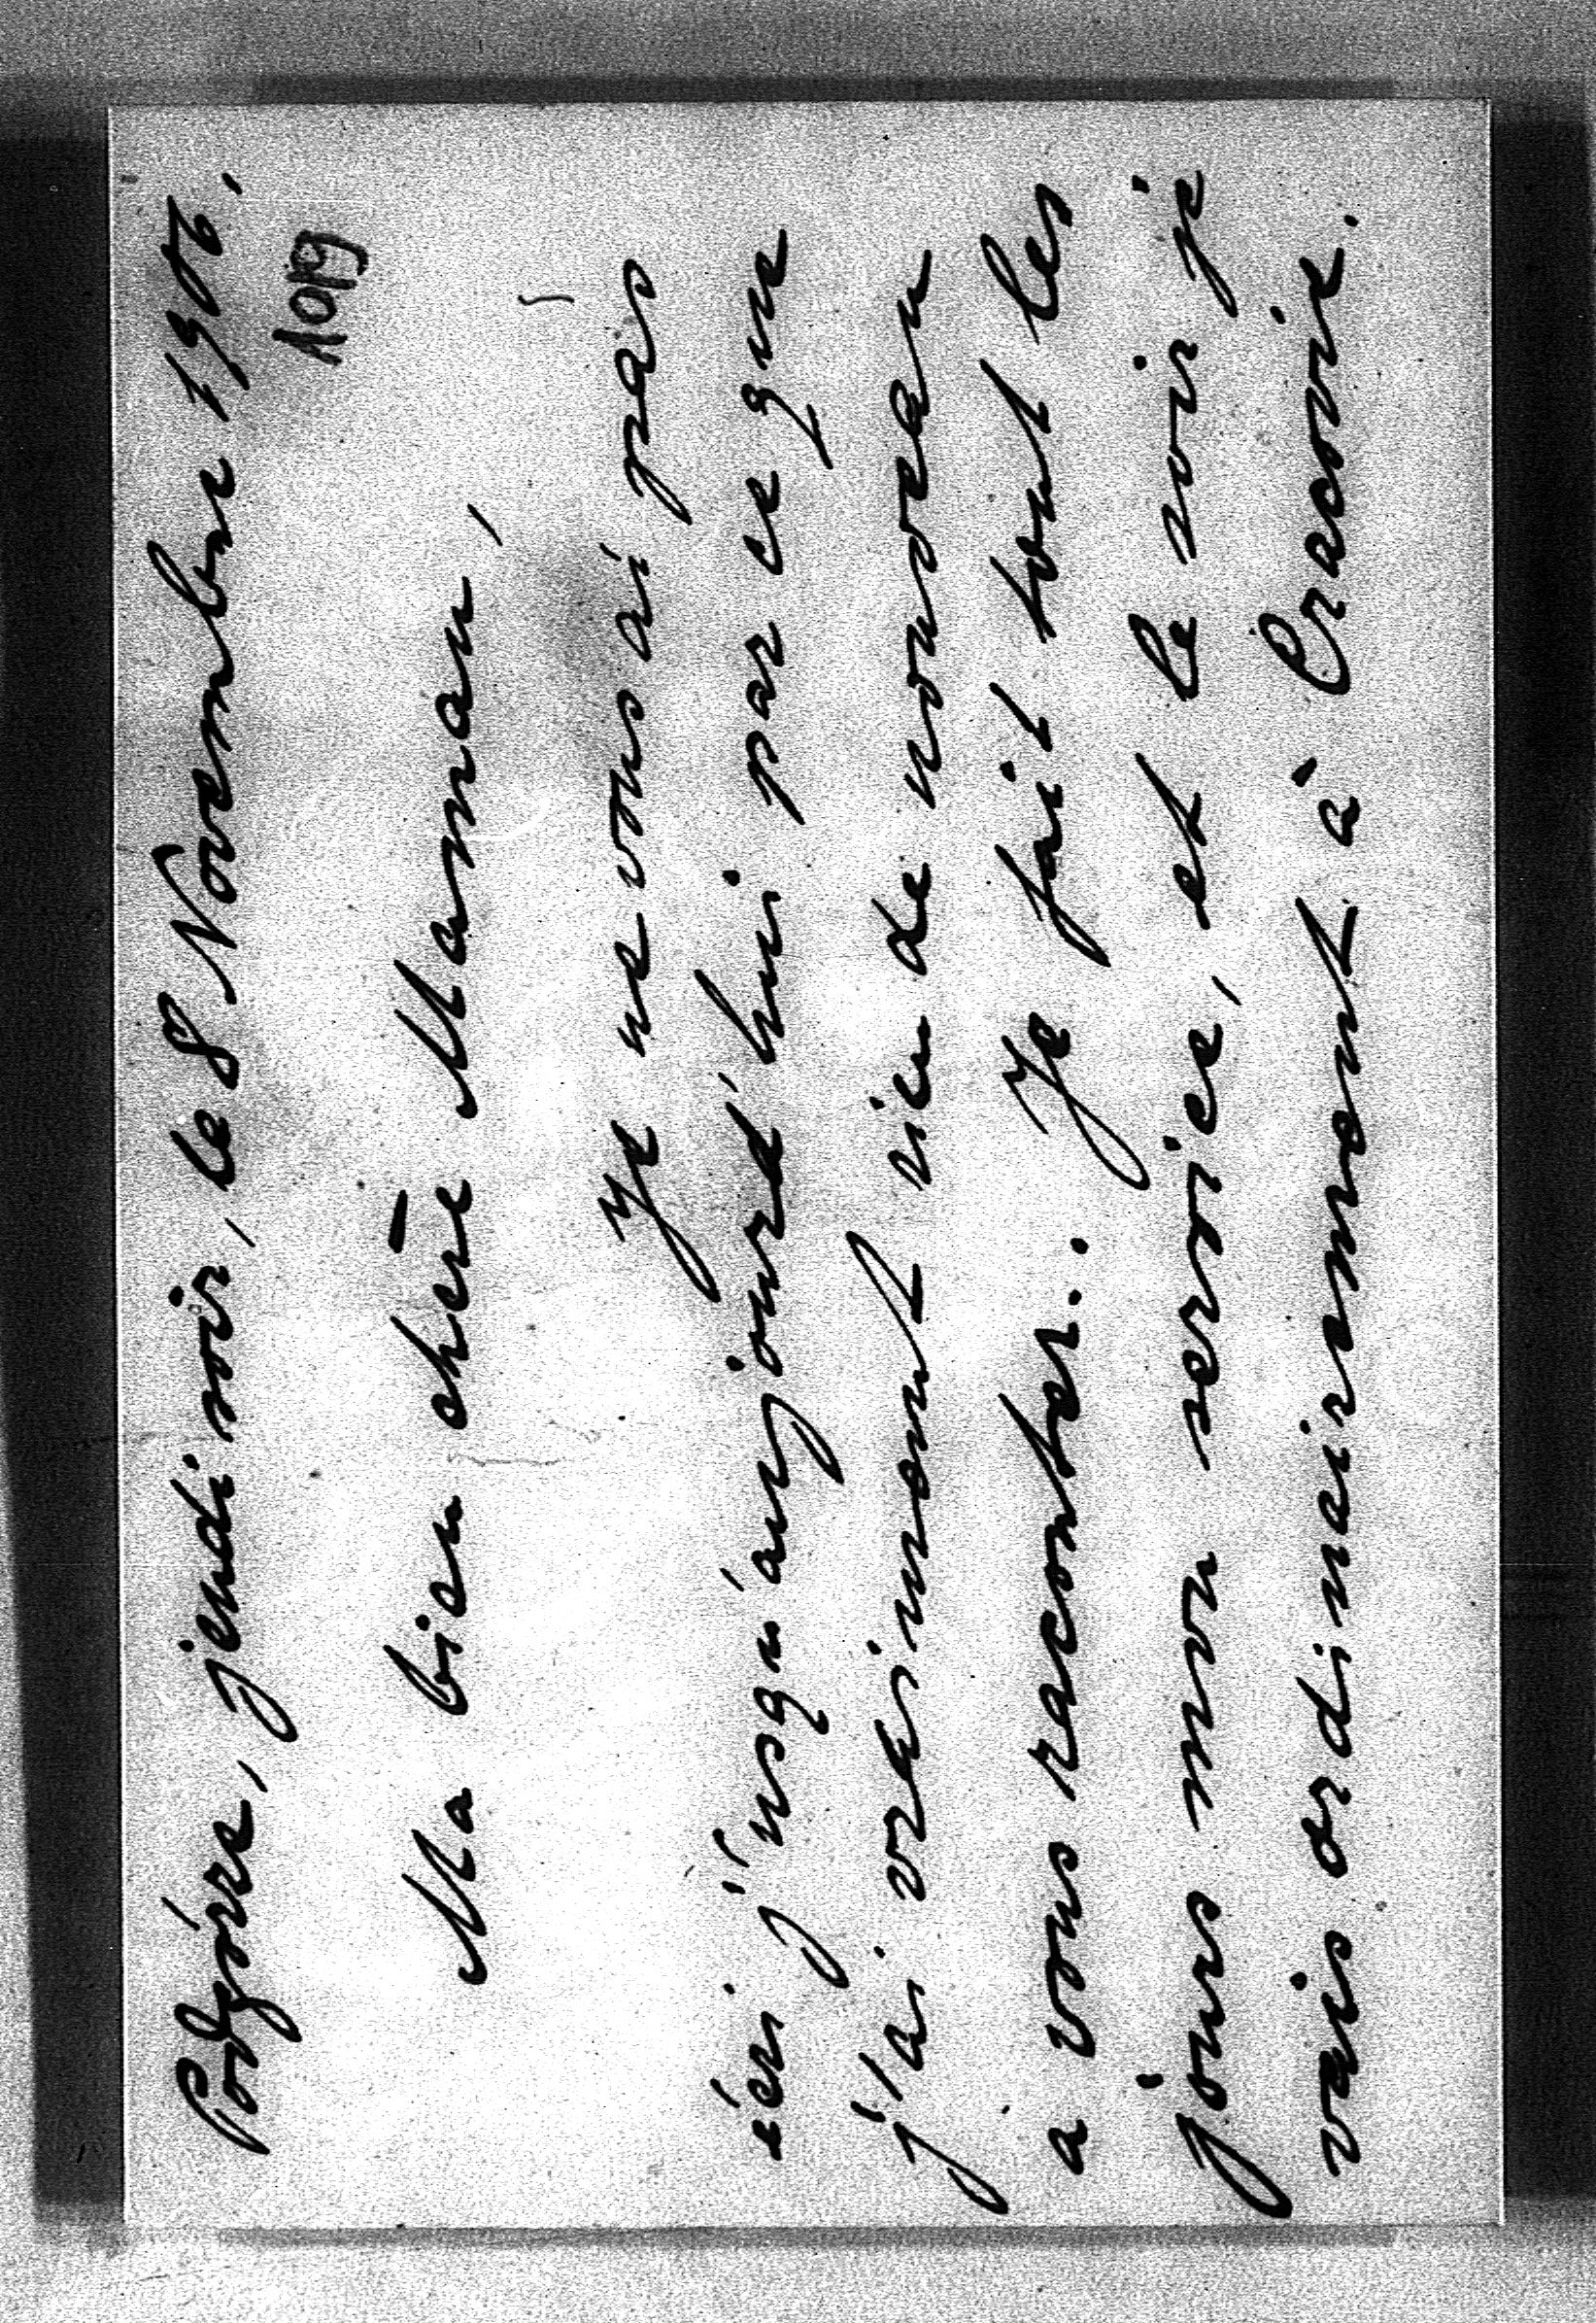 Podgórze, jeudi soir, le 8 Novembre 1906.
1019
Ma bien chère Maman,
Je ne vous ai pas
écri j'usqu'aujourd'hui par ce que
j'ai vraiment rien de nouveau
a vous raconter. Je fait tout les
jours mon service, et le soir je
vais ordinairement à Cracovie.